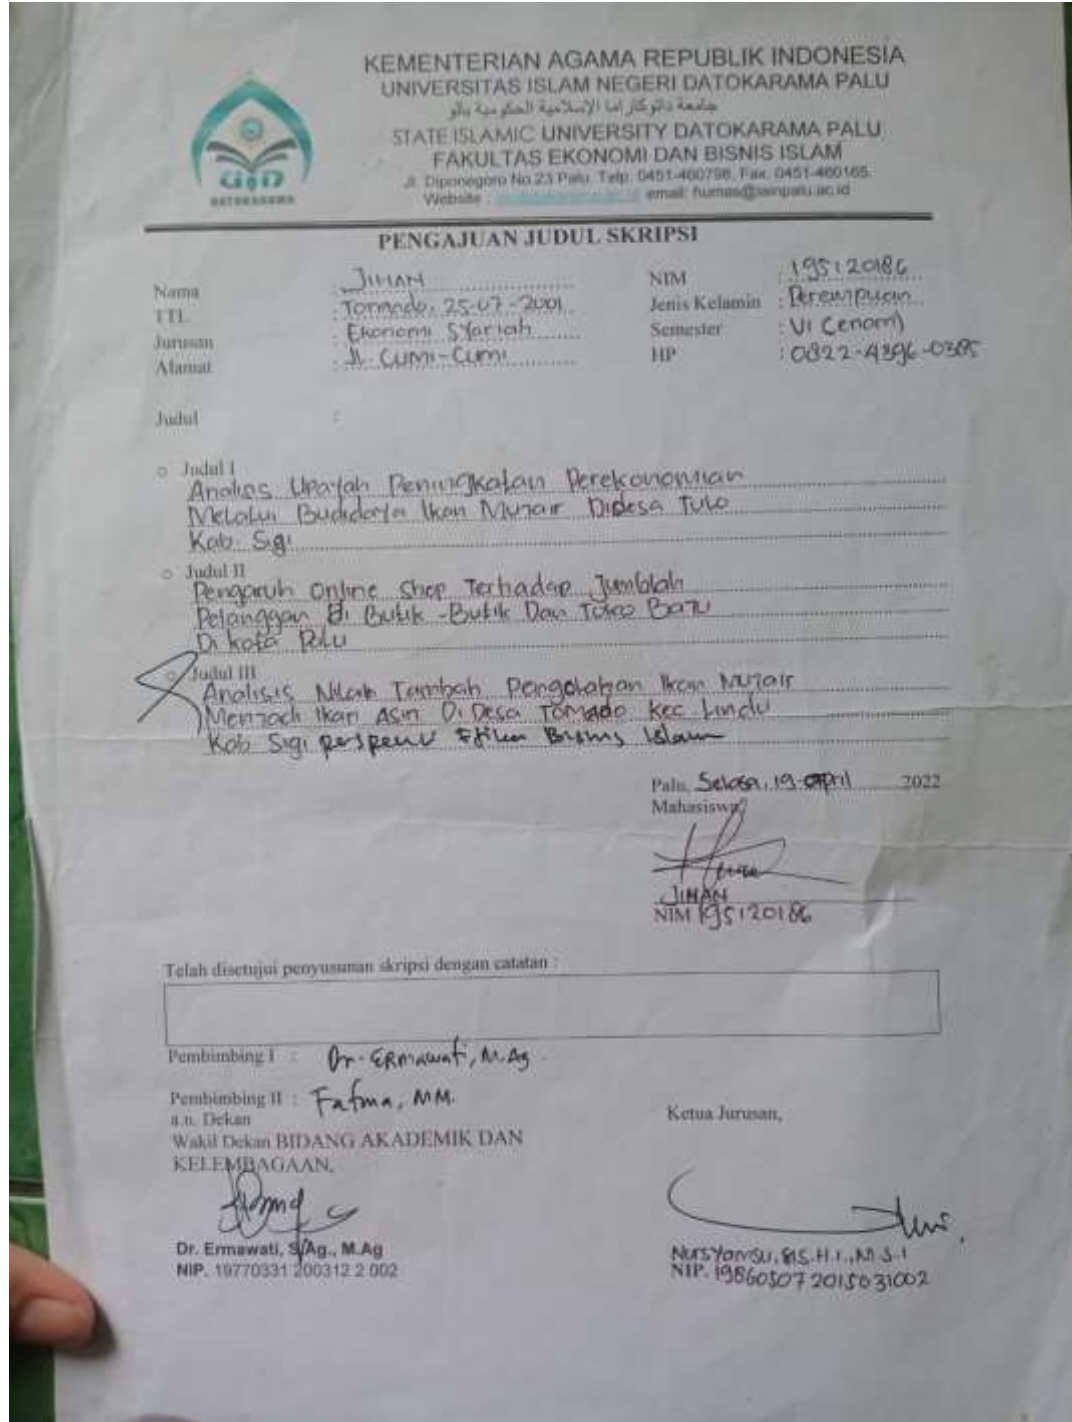 KEMENTERIAN AGAMA REPUBLIK INDONESIA
UNIVERSITAS ISLAM NEGERI DATOKARAMA PALU
جامعة داتوكاراما الإسلامية الحكومية بالو
STATE ISLAMIC UNIVERSITY DATOKARAMA PALU
FAKULTAS EKONOMI DAN BISNIS ISLAM
Jl. Diponegoro No.23 Palu. Telp. 0451-460798, Fax. 0451-460165.
Website : email: humas@iainpalu.ac.id
DATOKARAMA
PENGAJUAN JUDUL SKRIPSI
Nama : JIHAN NIM : 195120186
TTL : Tomado, 25-07-2001 Jenis Kelamin : Perempuan
Jurusan : Ekonomi Syariah Semester : VI (enam)
Alamat : Jl. Cumi-Cumi HP : 0822-4396-0385
Judul :
Judul I
Analisis Upayah Peningkatan Perekonomian
Melalui Budidaya Ikan Mujair Didesa Tulo
Kab. Sigi
Judul II
Pengaruh Online Shop Terhadap Jumblah
Pelanggan Di Butik-Butik Dan Toko Baju
Di kota Palu
Judul III
Analisis Nilah Tambah Pengolahan Ikan Mujair
Menjadi Ikan Asin Di Desa Tomado Kec Lindu
Kab Sigi Etika Bisnis Islam
Palu, Selasa, 19 April 2022
Mahasiswa,
JIHAN
NIM 195120186
Telah disetujui penyusunan skripsi dengan catatan :
Pembimbing I : Dr. Ermawati, M.Ag
Pembimbing II : Fatma, MM.
a.n. Dekan
Wakil Dekan BIDANG AKADEMIK DAN
KELEMBAGAAN,
Ketua Jurusan,
Dr. Ermawati, S.Ag., M.Ag
NIP. 19770331 200312 2 002
Nursyamsu, S.H.I., M.S.I
NIP. 198605072015031002